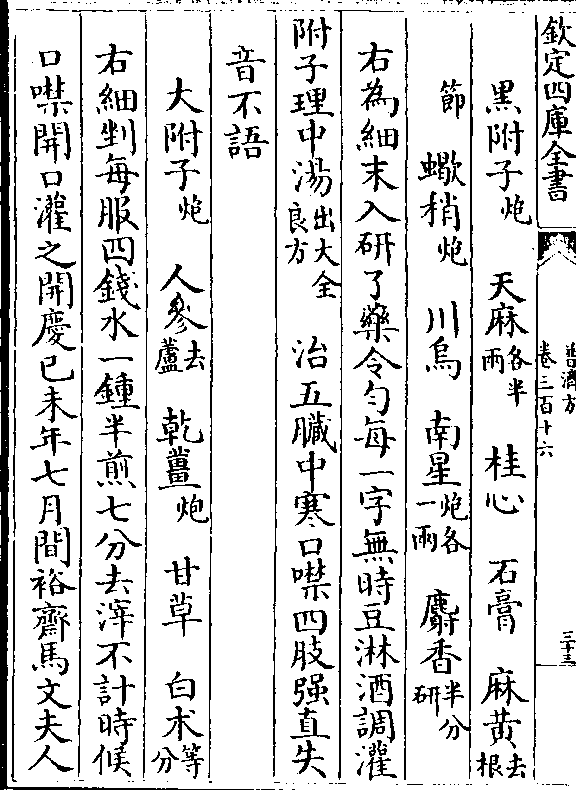 欽定四庫全書
普濟方
卷三百十六
三十三
黑附子炮 天麻各半兩 桂心 石膏 麻黄去根
節 蠍稍炮 川烏 南星炮各一兩 麝香半分研
右為細末入研了藥令勻每一字無時豆淋酒調灌
附子理中湯出大全良方 治五臟中寒口噤四肢强直失
音不語
大附子炮 人參去蘆 乾薑炮 甘草 白术等分
右細剉每服四錢水一鍾半煎七分去滓不計時候
口噤開口灌之開慶己未年七月間裕齋馬文夫人